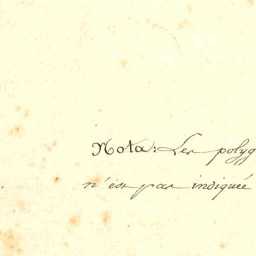 Nota: Les polyg
n'est pas indiquée